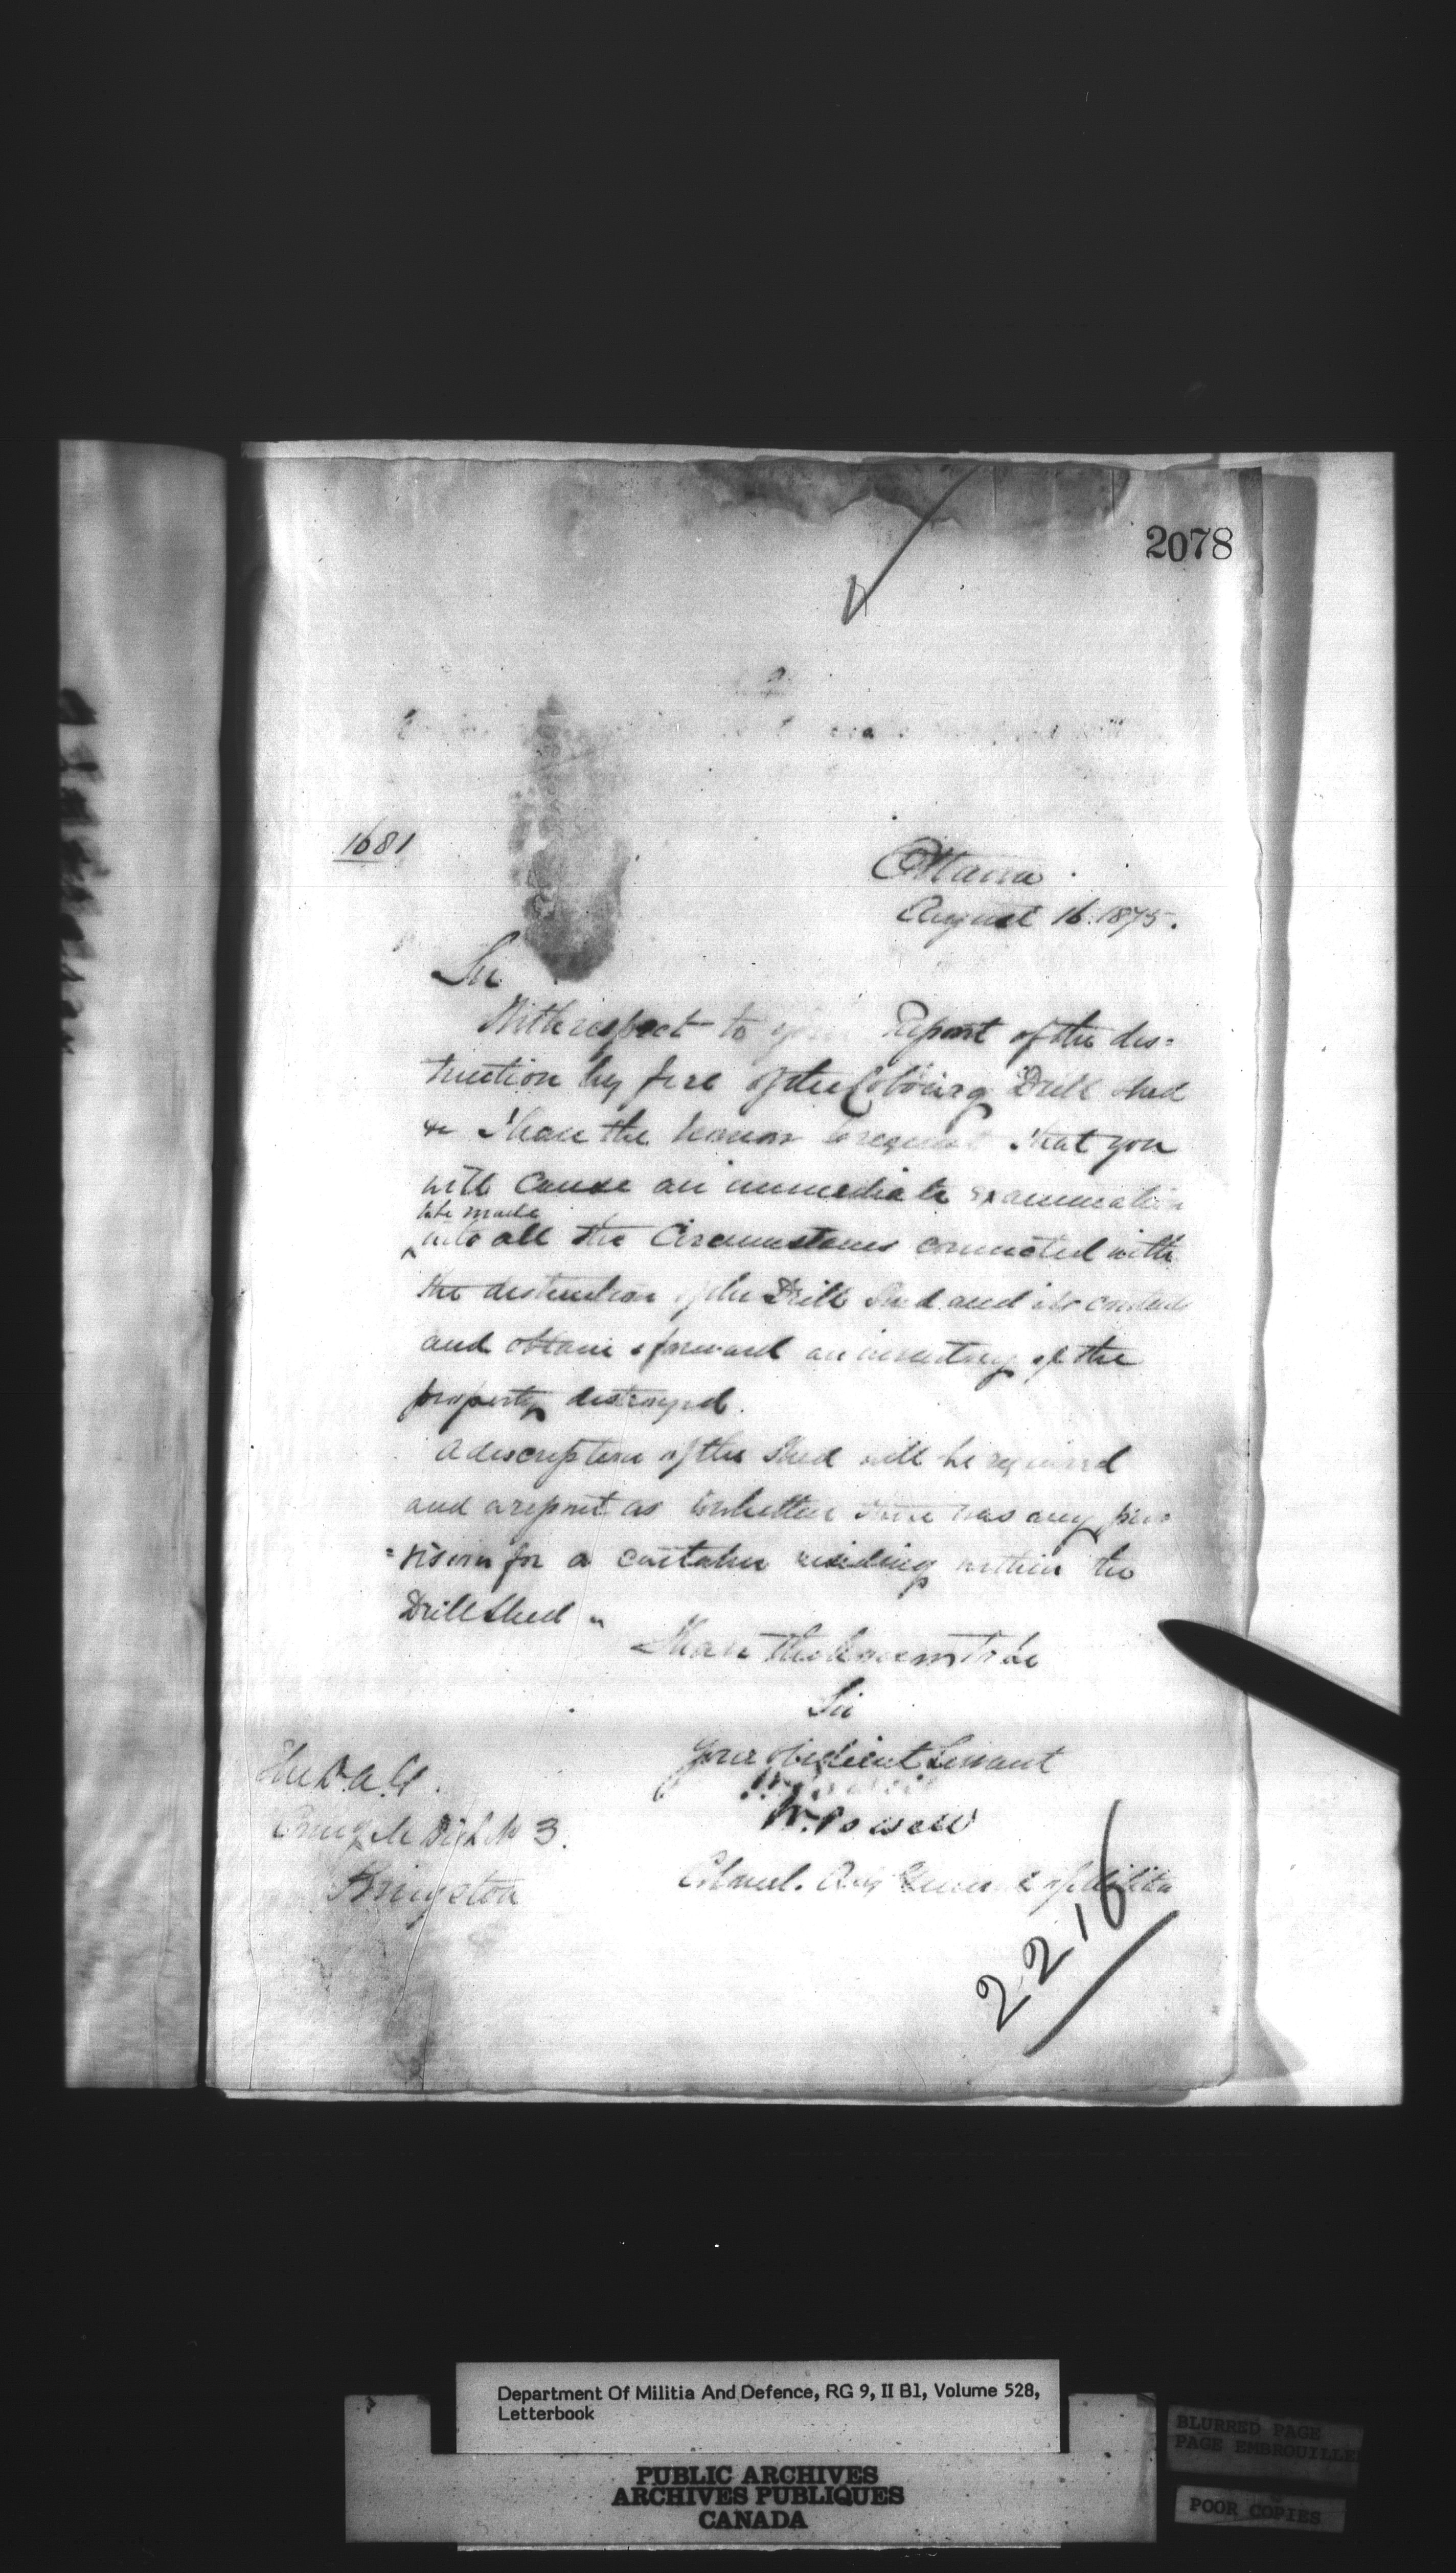 2078
1681
Ottawa
August 16. 1875.
Sir
With respect to your Report of the des=
truction by fire of the Cobourg Drill shed
& I have the honor to request that you
will cause an immediate examination
to be made
into all the Circumstances connected with
the destruction of the Drill Shed and its contents
and obtain & forward an inventory of the
property destroyed.
A description of the Shed will be required
and a report as to whether there was any pro
=vision for a caretaker residing within the
Drill Shed
I have the honor to be
Sir
Your obedient Servant
W. Powell
Colonel. Adj General of Militia
The D.A.G.
Comg Mil Dist No 3.
Kingston
2216
Department Of Militia And Defence, RG 9, II B1, Volume 528,
Letterbook
PUBLIC ARCHIVES
ARCHIVES PUBLIQUES
CANADA
BLURRED PAGE
PAGE EMBROUILLE
POOR COPIES